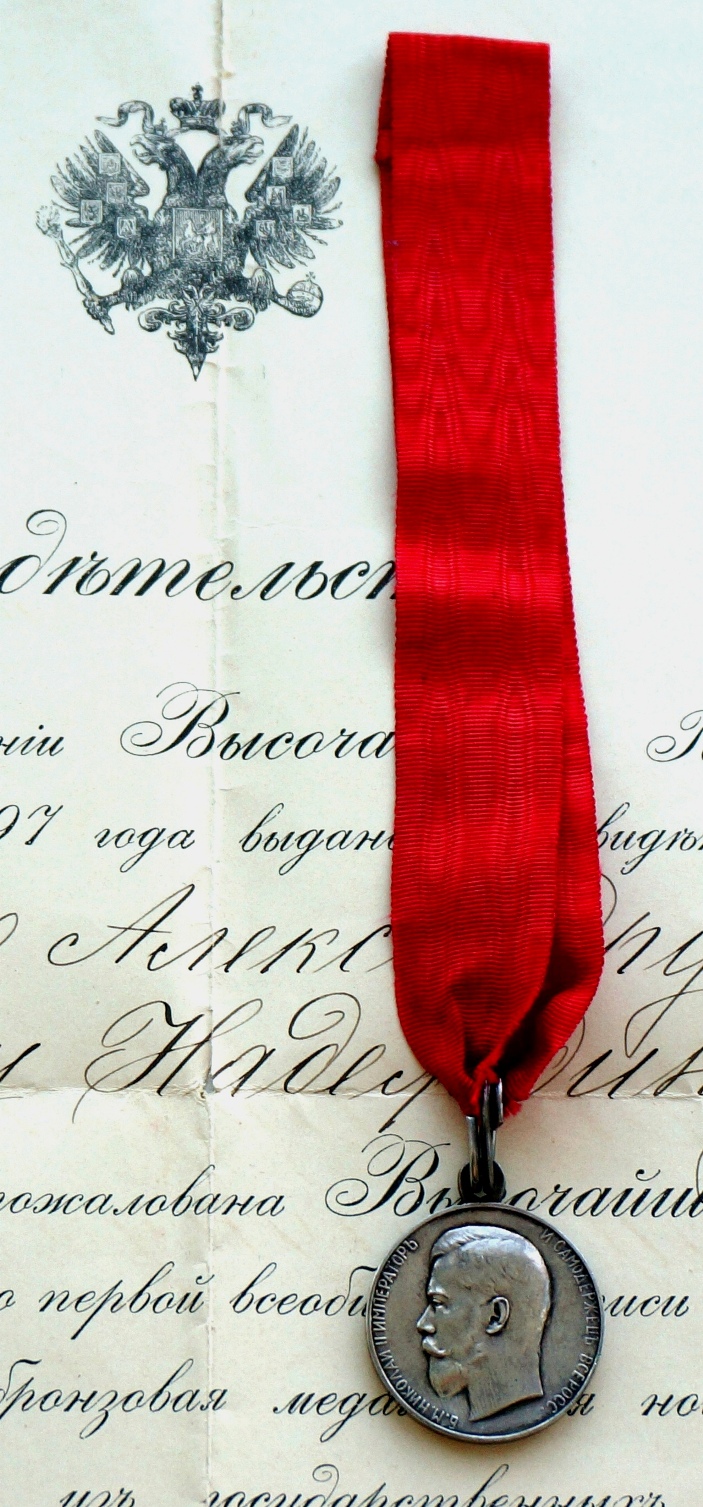 дѣтельст
ніи Высоча
97 года выдано видѣ
Алекс ру
Наде дин
пожалована Высочайш
о первой всеоб иси
бронзовая меда я но
изъ государственныхъ
Б.М. НИКОЛАЙ II ИМПЕРАТОРЪ И САМОДЕРЖЕЦЪ ВСЕРОСС.